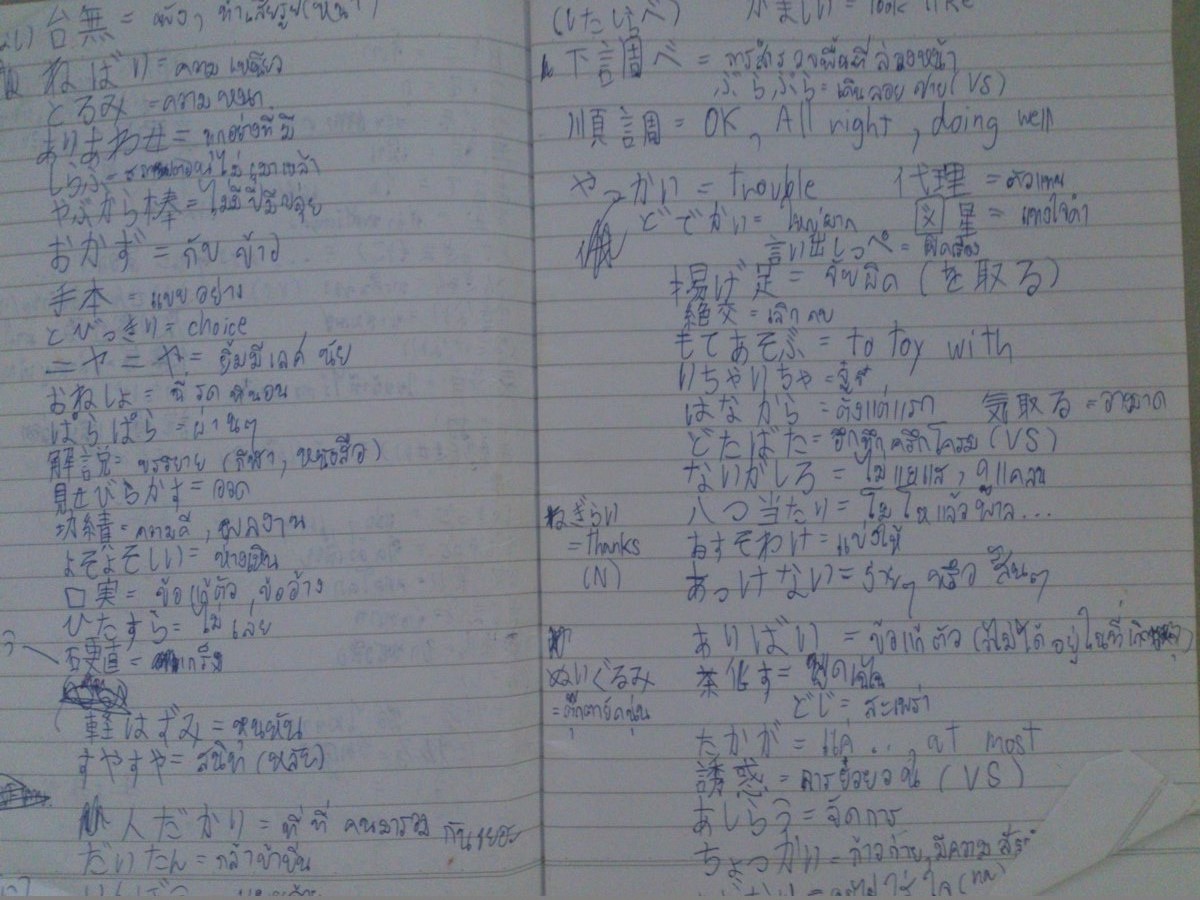 台無 = พัง, ทำเสียรูป(หน้า)
ねばり = ความเหนียว
とろみ = ความหนา
ありあわせ = ทุกอย่างที่มี
しらふ = ไม่เมาเหล้า
やぶから棒 = ไม่มีปี่มีขลุ่ย
おかず = กับข้าว
手本 = แบบอย่าง
とびっきり = choice
ニヤニヤ = ยิ้มมีเลศนัย
おねしょ = ฉี่รดที่นอน
ぱらぱら = ผ่านๆ
解説 = บรรยาย (กีฬา, หนังสือ)
見せびらかす = อวด
功績 = ความดี, ผลงาน
よそよそしい = ห่างเหิน
口実 = ข้อแก้ตัว, ข้ออ้าง
ひたすら = ไม่เลย
硬直 = เกร็ง
軽はずみ = หุนหัน
すやすや = สนิท (หลับ)
人だかり = ที่ที่คนมารวมกันเยอะ
だいたん = กล้าบ้าบิ่น
(したしらべ)
がましい = look like
下調べ = การสำรวจพื้นที่ล่วงหน้า
ぶらぶら = เดินลอยชาย (VS)
順調 = OK, All right, doing well
やっかい = trouble
代理 = ตัวแทน
どでかい = ใหญ่มาก
図星 = แทงใจดำ
言い出しっぺ =
揚げ足 = จับผิด (を取る)
絶交 = เลิกคบ
もてあそぶ = to toy with
いちゃいちゃ = จู๋จี๋
はなから = ตั้งแต่แรก
気取る = วางมาด
どたばた = อึกทึกครึกโครม (VS)
ないがしろ = ไม่แยแส, ดูแคลน
ねぎらい
= thanks
(N)
八つ当たり = โมโหแล้วพาล...
おすそわけ = แบ่งให้
あっけない = ง่ายๆ หรือ สั้นๆ
ありばい = ข้อแก้ตัว (ว่าไม่ได้อยู่ในที่
ぬいぐるみ
= ตุ๊กตายัดนุ่น
茶化す = พูดเล่น
どじ = สะเพร่า
たかが = แค่..., at most
誘惑 = การยั่วยวน (VS)
あしらう = จัดการ
ちょっかい = ก้าวก่าย, มีความ